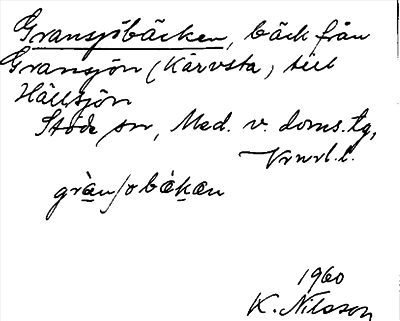 Gransjöbäcken, bäck från
Gransjön (Kärvsta) till
Hällsjön
Stöde sn, Med. v. doms.tg,
Vrnrl. l.
1960
K. Nilsson